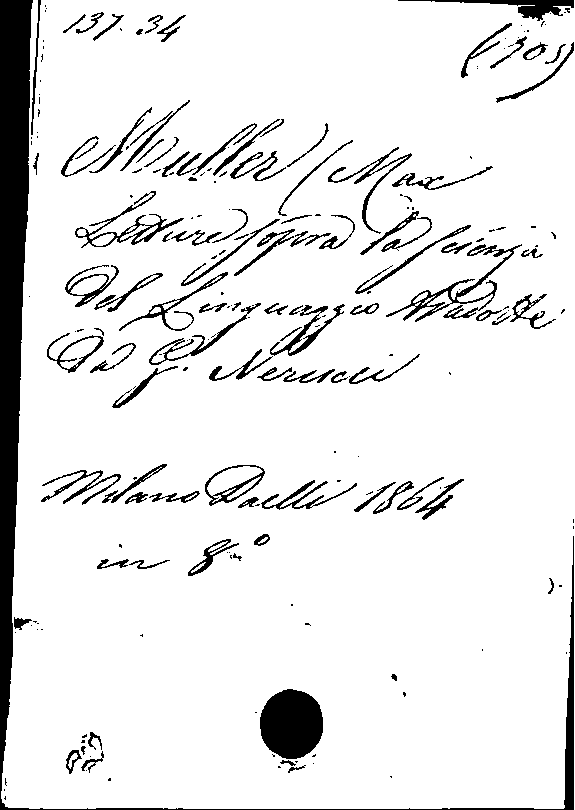 137. 34
(305)
Muller (Max
Letture sopra la scienza
del Linguaggio tradotte
da G. Nerucci
Milano Daelli 1864
in 8.º